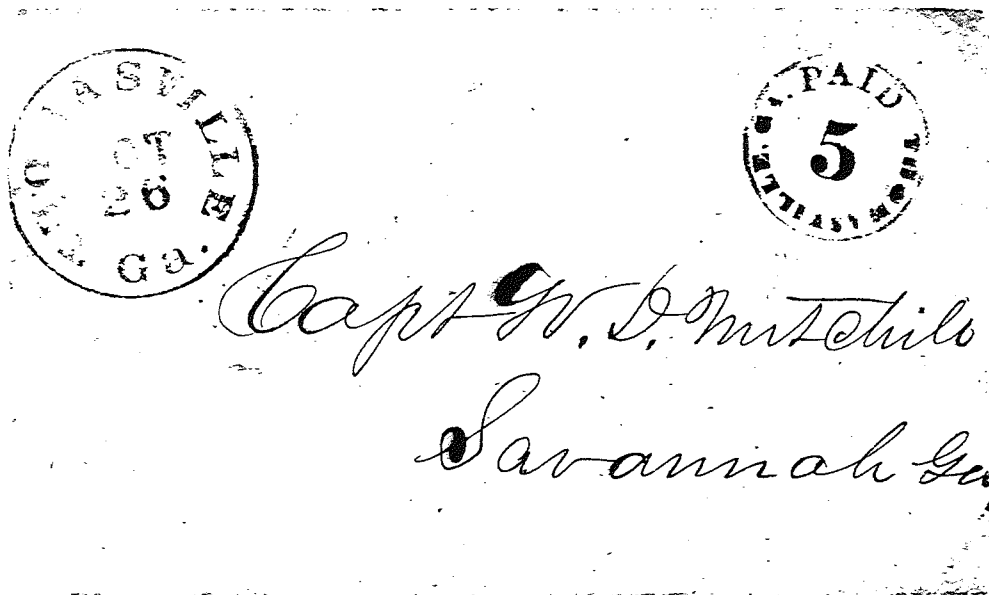 THOMASVILLE Ga.
OCT
26
PAID
5
THOMASVILLE. Ga.
Capt W. D. Mitchell
Savannah Ga